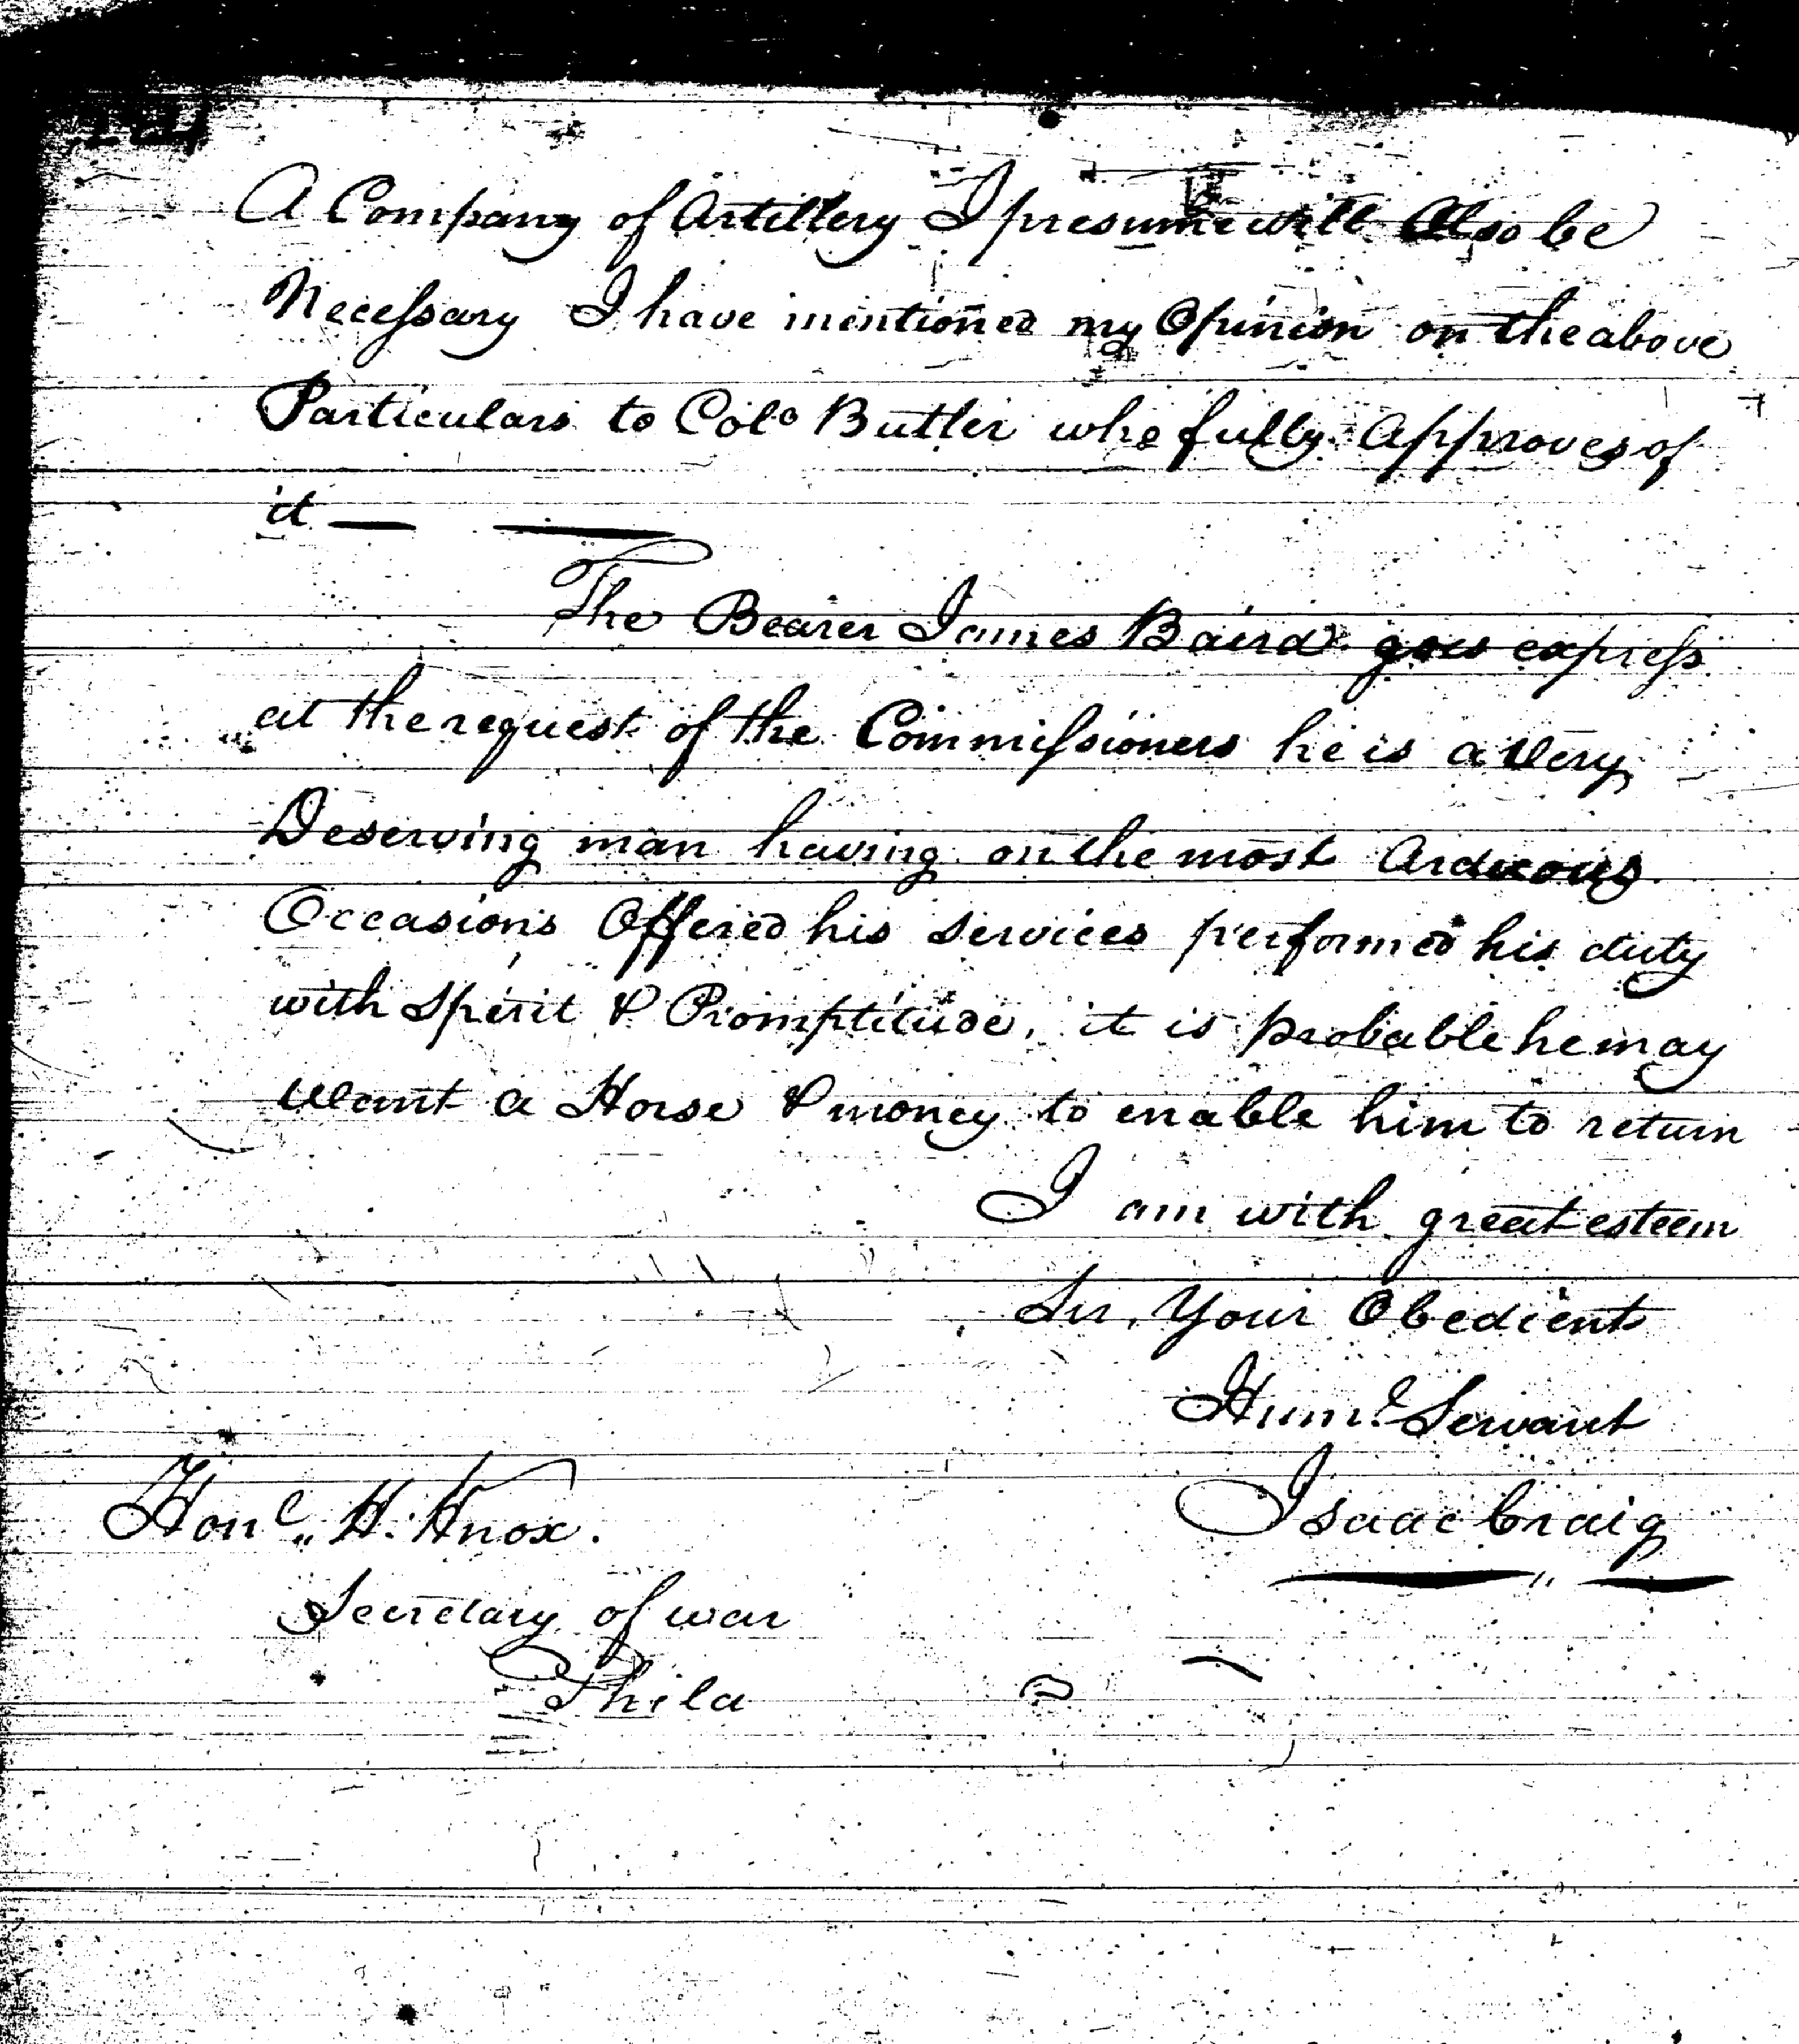 A Company of Artillery I presume will Also be
Necessary I have mentioned my Opinion on the above
Particulars to Colo Butler who fully Approves of
it — —
The Bearer James Baird goes express
at the request of the Commissioners he is a very
Deserving man having on the most Arduous
Occasions Offered his services performed his duty
with Spirit & Promptitude, it is probable he may
want a Horse & money to enable him to return
I am with great esteem
Sir, Your Obedient
Huml Servant
Isaac Craig
Honl,, H. Knox.
Secretary of war
Phila